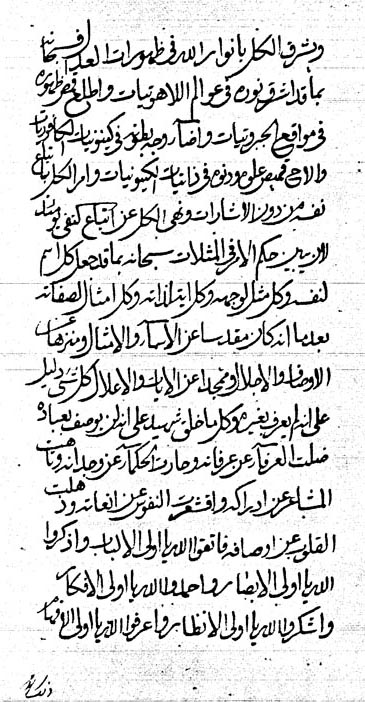 وشرف الكل بانوار الله في ظهورات العدل فسبحانه
بما قد اشرق نوره في عوالم اللاهوتيات واطلع قمص ظهوره
في مواقع الجبروتيات واضاء روحه بطون في كينونيات الكافوريات
والاح قميص علي ودنوه في ذاتيات الكينونيات وامر الكل باتباع
نفسه من دون الاشارات ونهى الكل عن اتباع كنفي
لان يبين حكم الامر في المثلات سبحانه بما قد جعل كل اسم
لنفسه وكل مثل لوجهه وكل اية لذاته وكل امثال لصفاته
بعد ما انه كان مقدسا عن الاسماء والامثال ومنزها عن
الاوصاف والاجلال وممجدا عن الايات والاعلال كل شئ دليل
على انه لم يعرف بغيره وكل ما خلق شهيد على انه لن يوصف بعباده
ضلت العرفاء عن عرفانه وحارت الحكماء عن وجدانه وتاهت
المشاعر عن ادراكه واقشعرت النفوس عن انعاته وذهلت
القلوب عن اوصافه فاتقوا الله يا اولى الالباب واذكروا
الله يا اولى الابصار واحمدوا الله يا اولى الافكار
واشكروا الله يا اولى الانظار واعرفوا الله يا اولى